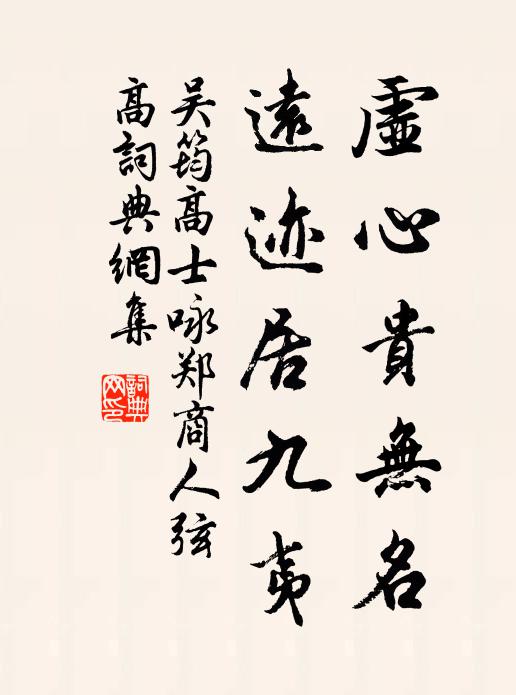 虛心貴無名
遠迹居九夷
吴筠高士咏郑商人弦
高詞典網集
詞典網印